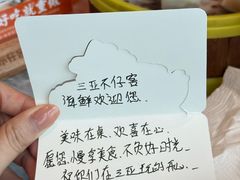 三亚不仔客
海鲜欢迎您.
美味在桌,欢喜在心.
愿您慢享美食,不负好时光.
祝你们在三亚玩的开心.